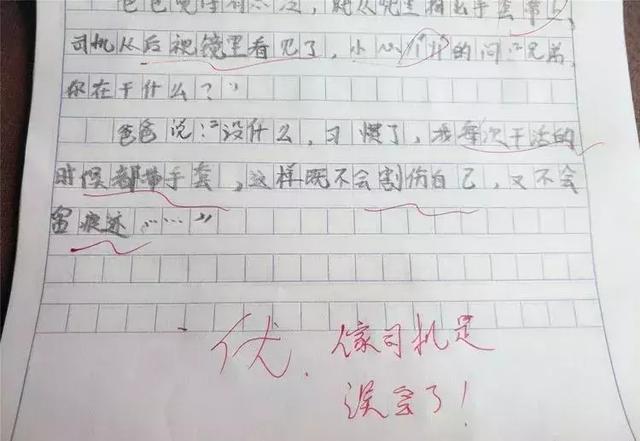 爸爸觉得有点冷，就从兜里掏出手套带上
司机从后视镜里看见了，小心翼翼的问："兄弟，
你在干什么？"
爸爸说："没什么，习惯了，我每次干活的
时候都带手套，这样既不会割伤自己，又不会
留痕迹……"
优．像司机是
误会了！